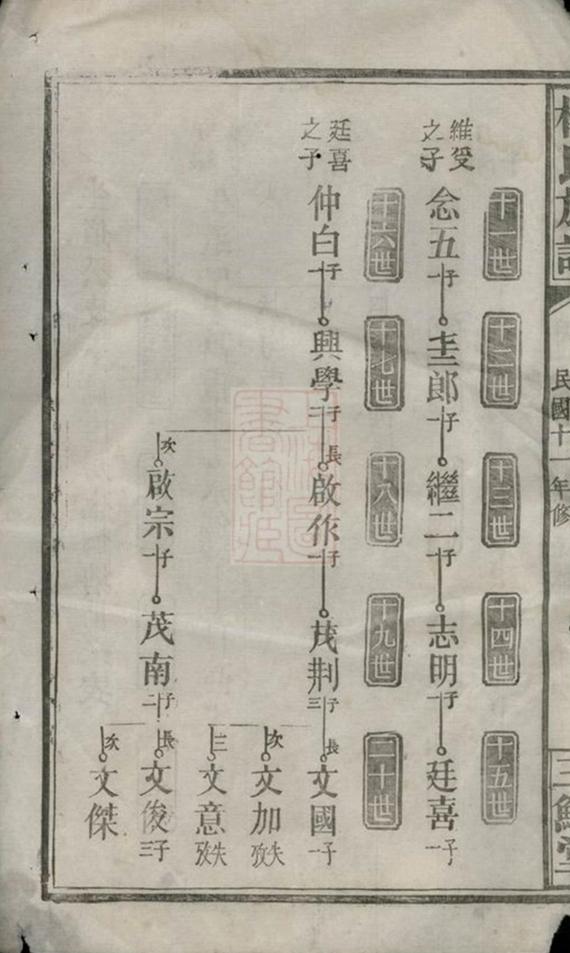 氏族譜
民國十一年修
三鱔堂
十一世
十二世
十三世
十四世
十五世
維受之子
念五 一子
圭郎 一子
繼二 一子
志明 一子
廷喜 一子
十六世
十七世
十八世
十九世
二十世
廷喜之子
仲白 一子
興學 二子
長 啟作 一子
茂荆 三子
長 文國 一子
次 文加 失攷
三 文意 失攷
次 啟宗 一子
茂南 二子
長 文俊 三子
次 文傑